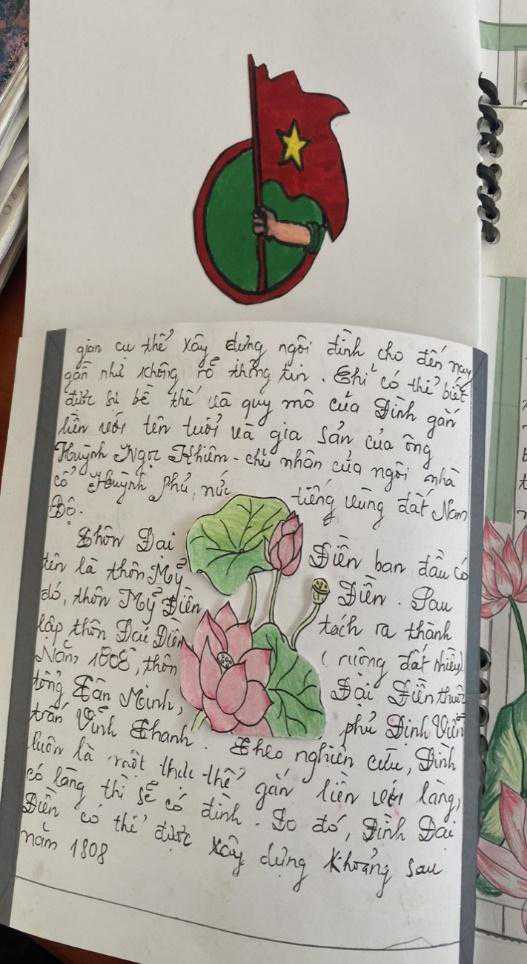 gian cụ thể xây dựng ngôi đình cho đến nay
gần như không rõ thông tin. Chỉ có thể biết
được sự bề thế và quy mô của Đình gắn
liền với tên tuổi và gia sản của ông
Huỳnh Ngọc Khiêm - chủ nhân của ngôi nhà
cổ Huỳnh Phủ, nức tiếng vùng đất Nam
Bộ.
Thôn Đại Điền ban đầu có
tên là thôn Mỹ Điền. Sau
đó, thôn Mỹ Điền tách ra thành
lập thôn Đại Điền (ruộng đất nhiều)
Năm 1808, thôn Đại Điền thuộc
tổng Tân Minh, phủ Định Viễn
trấn Vĩnh Thanh. Theo nghiên cứu, Đình
luôn là một thực thể gắn liền với làng,
có làng thì sẽ có đình. Do đó, Đình Đại
Điền có thể được xây dựng khoảng sau
năm 1808